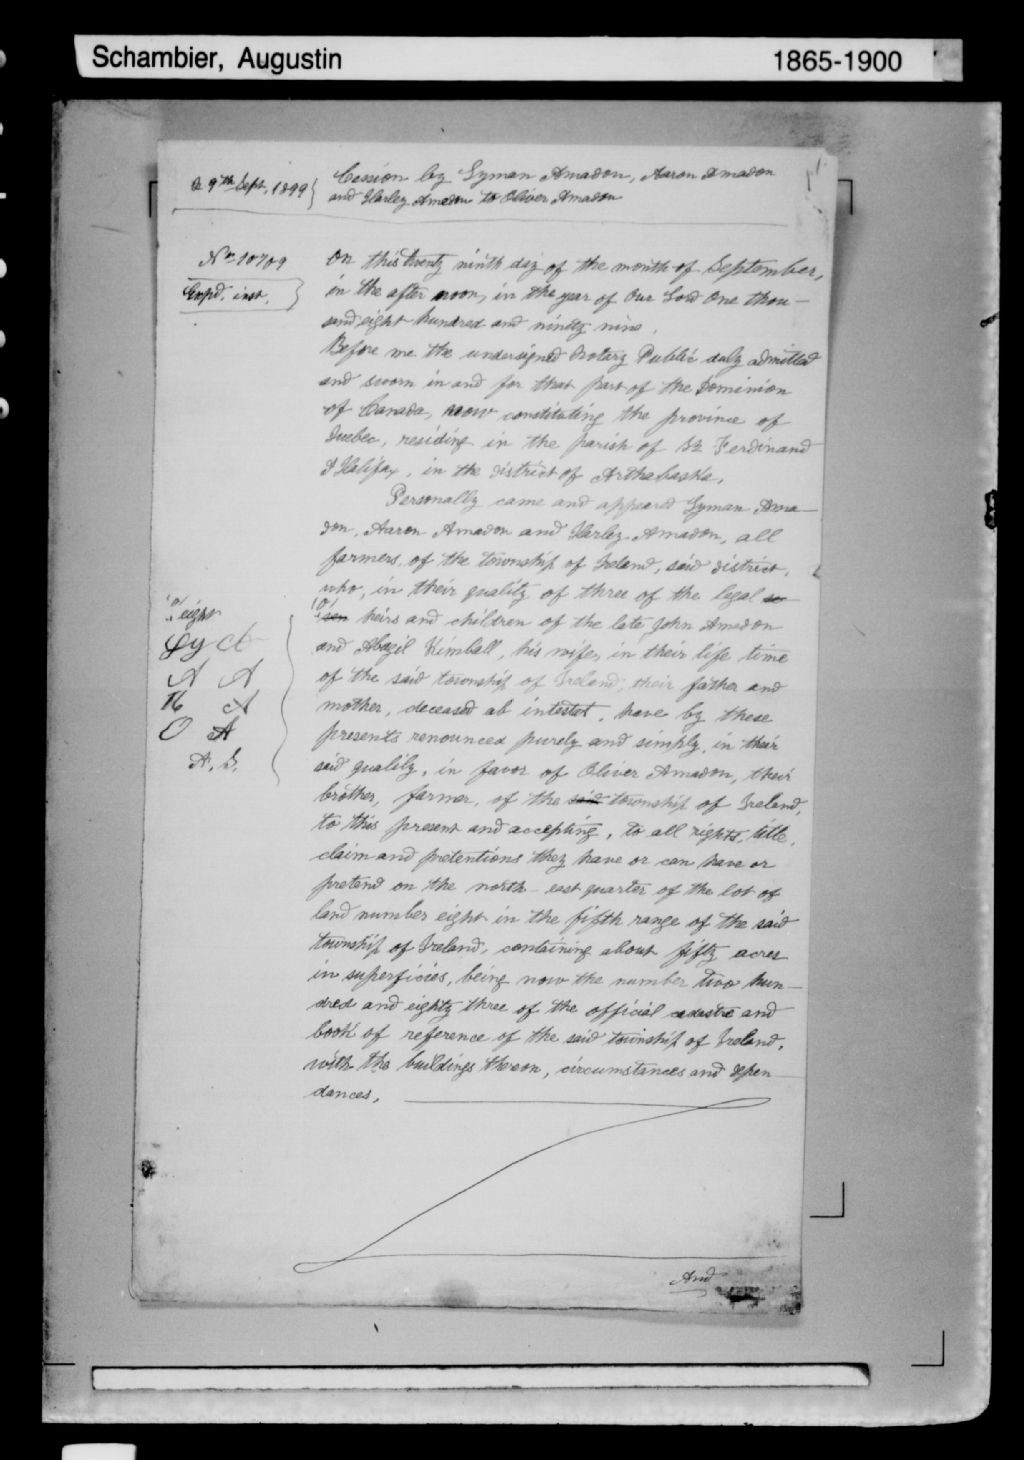 Schambier, Augustin 1865-1900
Cession by Lyman Amadon, Aaron Amadon
and Harley Amadon to Oliver Amadon
29th Sept, 1899
No 10709
Exp'd. inst.
On this twenty ninth day of the month of September,
in the after noon, in the year of Our Lord One thou-
sand eight hundred and ninety nine.
Before me the undersigned Notary Public duly admitted
and sworn in and for that part of the Dominion
of Canada, now constituting the province of
Quebec, residing in the parish of St Ferdinand
d'Halifax, in the district of Arthabaska,
Personally came and appeared Lyman Ama-
don, Aaron Amadon and Harley Amadon, all
farmers, of the township of Ireland, said district,
who, in their quality of three of the legal
heirs and children of the late John Amadon
and Abagil Kimball, his wife, in their life time
of the said township of Ireland, their father and
mother, deceased ab intestat, have by these
presents renounced purely and simply, in their
said quality, in favor of Oliver Amadon, their
brother, farmer, of the said township of Ireland,
to this present and accepting, to all rights, title,
claim and pretentions they have or can have or
pretend on the north-east quarter of the lot of
land number eight in the fifth range of the said
township of Ireland, containing about fifty acres
in superficies, being now the number two hun-
dred and eighty three of the official cadastre and
book of reference of the said township of Ireland,
with the buildings thereon, circumstances and depen-
dances.
And
eight
Ly A
A A
H A
O A
A. S.